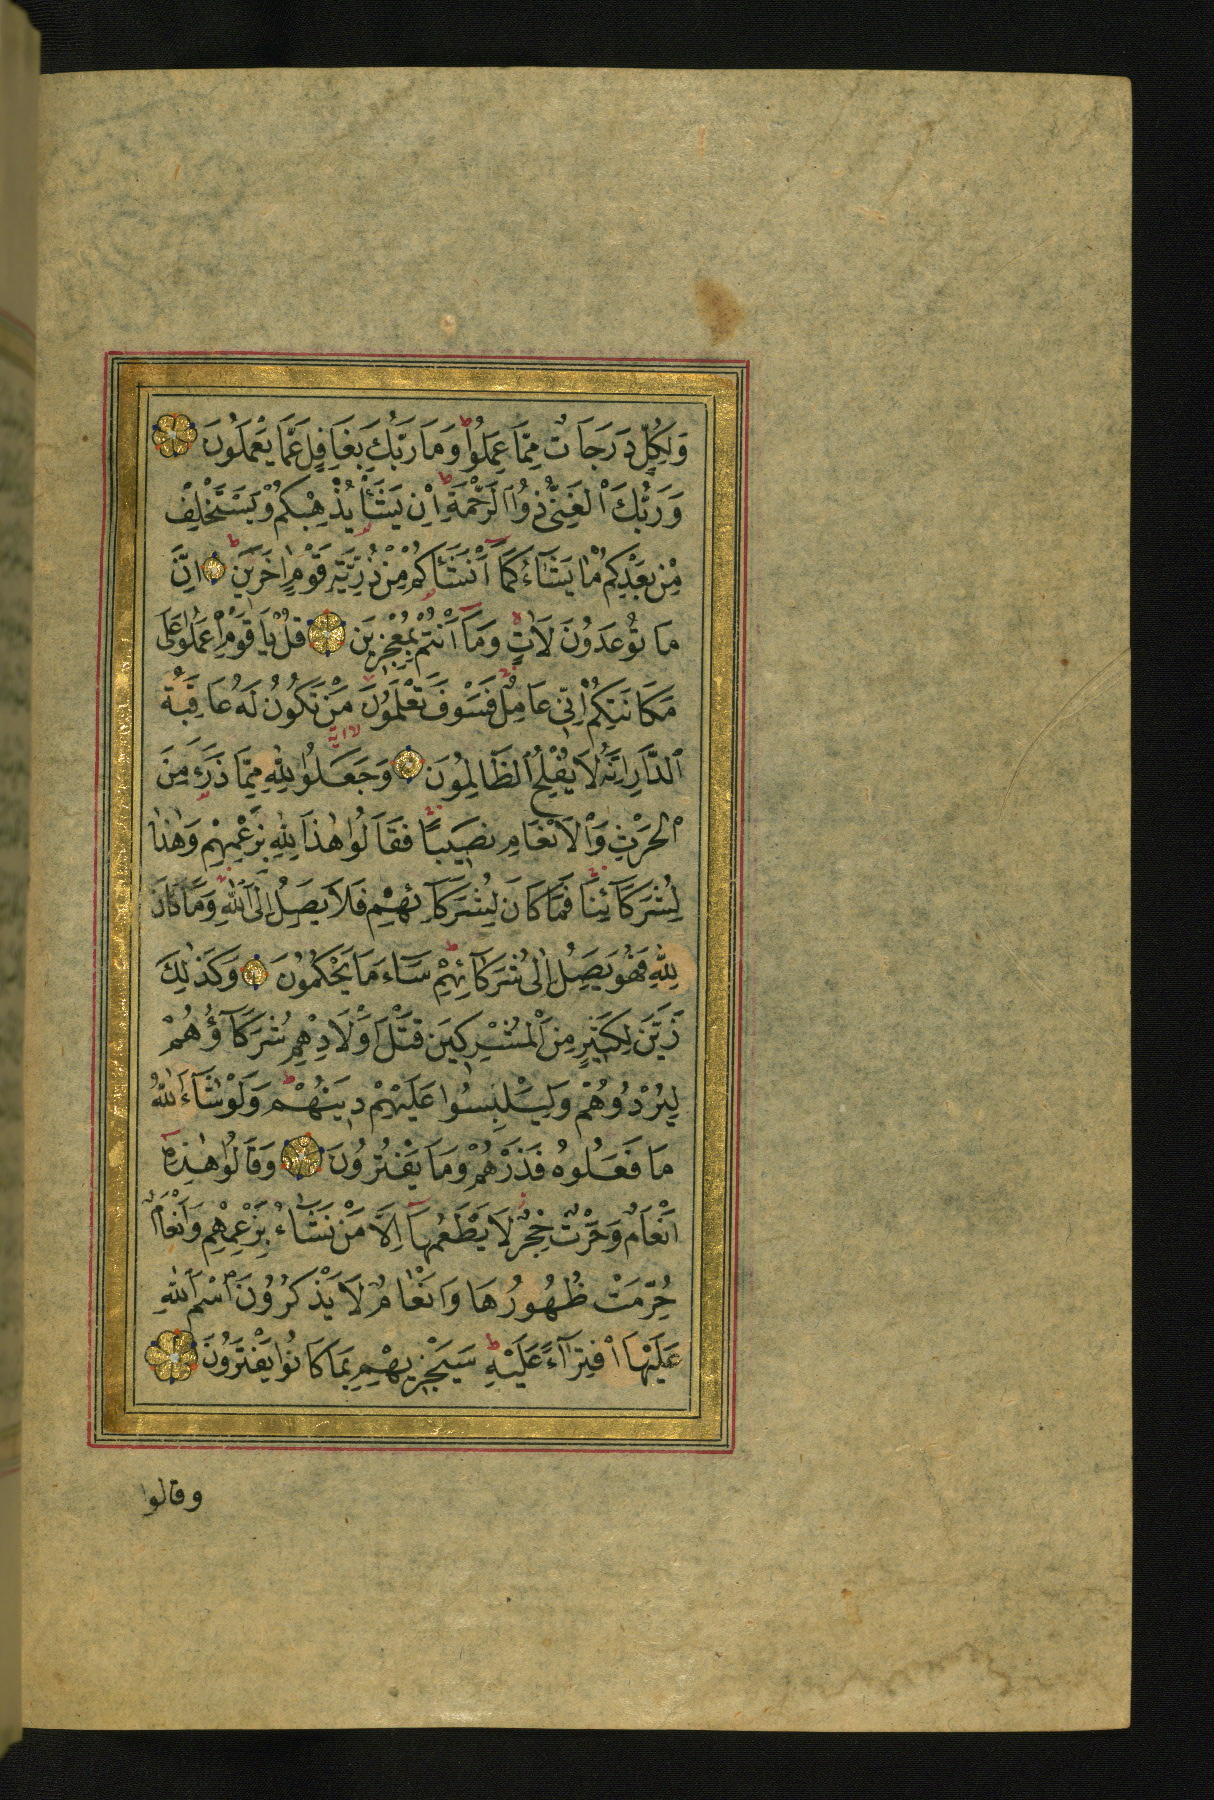 وَلِكُلٍّ دَرَجَاتٌ مِمَّا عَمِلُوا وَمَا رَبُّكَ بِغَافِلٍ عَمَّا يَعْمَلُونَ
وَرَبُّكَ الْغَنِيُّ ذُو الرَّحْمَةِ اِنْ يَشَأْ يُذْهِبْكُمْ وَيَسْتَخْلِفْ
مِنْ بَعْدِكُمْ مَا يَشَاءُ كَمَا اَنْشَأَكُمْ مِنْ ذُرِّيَّةِ قَوْمٍ اٰخَرِينَ اِنَّ
مَا تُوعَدُونَ لَاٰتٍ وَمَا اَنْتُمْ بِمُعْجِزِينَ قُلْ يَا قَوْمِ اعْمَلُوا عَلٰى
مَكَانَتِكُمْ اِنِّي عَامِلٌ فَسَوْفَ تَعْلَمُونَ مَنْ تَكُونُ لَهُ عَاقِبَةُ
الدَّارِ اِنَّهُ لَا يُفْلِحُ الظَّالِمُونَ وَجَعَلُوا لِلّٰهِ مِمَّا ذَرَأَ مِنَ
الْحَرْثِ وَالْاَنْعَامِ نَصِيبًا فَقَالُوا هٰذَا لِلّٰهِ بِزَعْمِهِمْ وَهٰذَا
لِشُرَكَائِنَا فَمَا كَانَ لِشُرَكَائِهِمْ فَلَا يَصِلُ اِلَى اللّٰهِ وَمَا كَانَ
لِلّٰهِ فَهُوَ يَصِلُ اِلٰى شُرَكَائِهِمْ سَاءَ مَا يَحْكُمُونَ وَكَذٰلِكَ
زَيَّنَ لِكَثِيرٍ مِنَ الْمُشْرِكِينَ قَتْلَ اَوْلَادِهِمْ شُرَكَاؤُهُمْ
لِيُرْدُوهُمْ وَلِيَلْبِسُوا عَلَيْهِمْ دِينَهُمْ وَلَوْ شَاءَ اللّٰهُ
مَا فَعَلُوهُ فَذَرْهُمْ وَمَا يَفْتَرُونَ وَقَالُوا هٰذِهِ
اَنْعَامٌ وَحَرْثٌ حِجْرٌ لَا يَطْعَمُهَا اِلَّا مَنْ نَشَاءُ بِزَعْمِهِمْ وَاَنْعَامٌ
حُرِّمَتْ ظُهُورُهَا وَاَنْعَامٌ لَا يَذْكُرُونَ اسْمَ اللّٰهِ
عَلَيْهَا افْتِرَاءً عَلَيْهِ سَيَجْزِيهِمْ بِمَا كَانُوا يَفْتَرُونَ
وقالوا